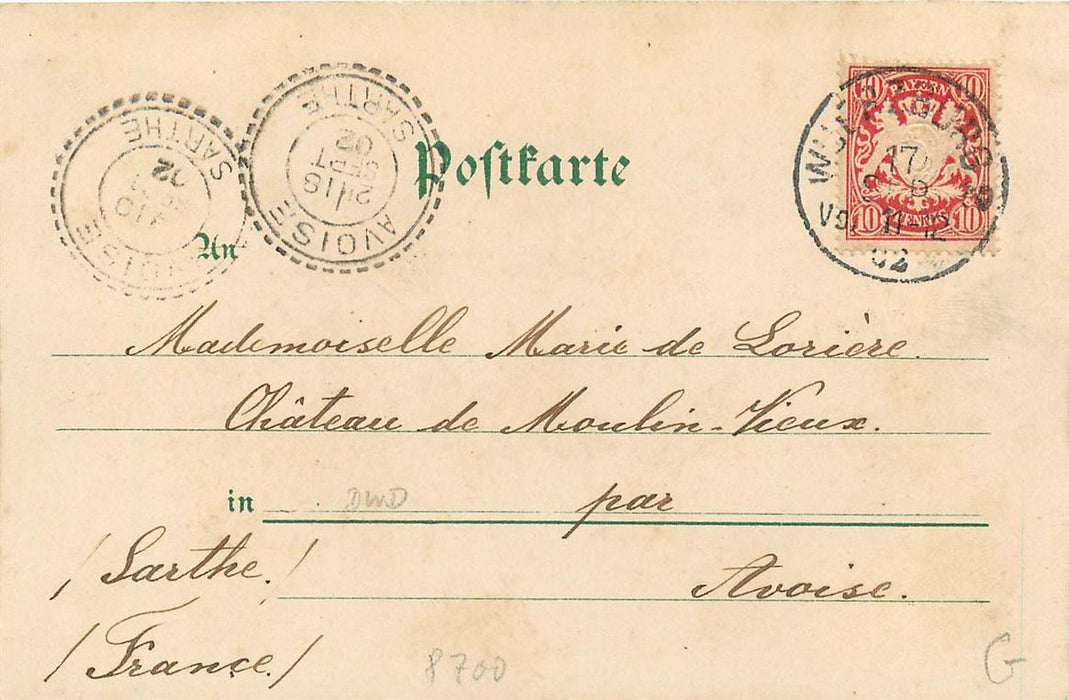 SARTHE
02
AVOISE
SARTHE
02
SEPT
21 18
AVOISE
Postkarte
10 BAYERN 10
10 PFENNIG 10
WUERZBURG
17
11-12
02
An
Mademoiselle Marie de Lorière.
Château de Moulin-Vieux.
in par
/ Sarthe. / Avoise.
/ France. /
8700
G